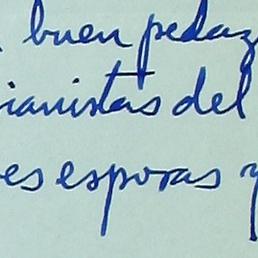 buen pedaz
ianistas del
es esporas y